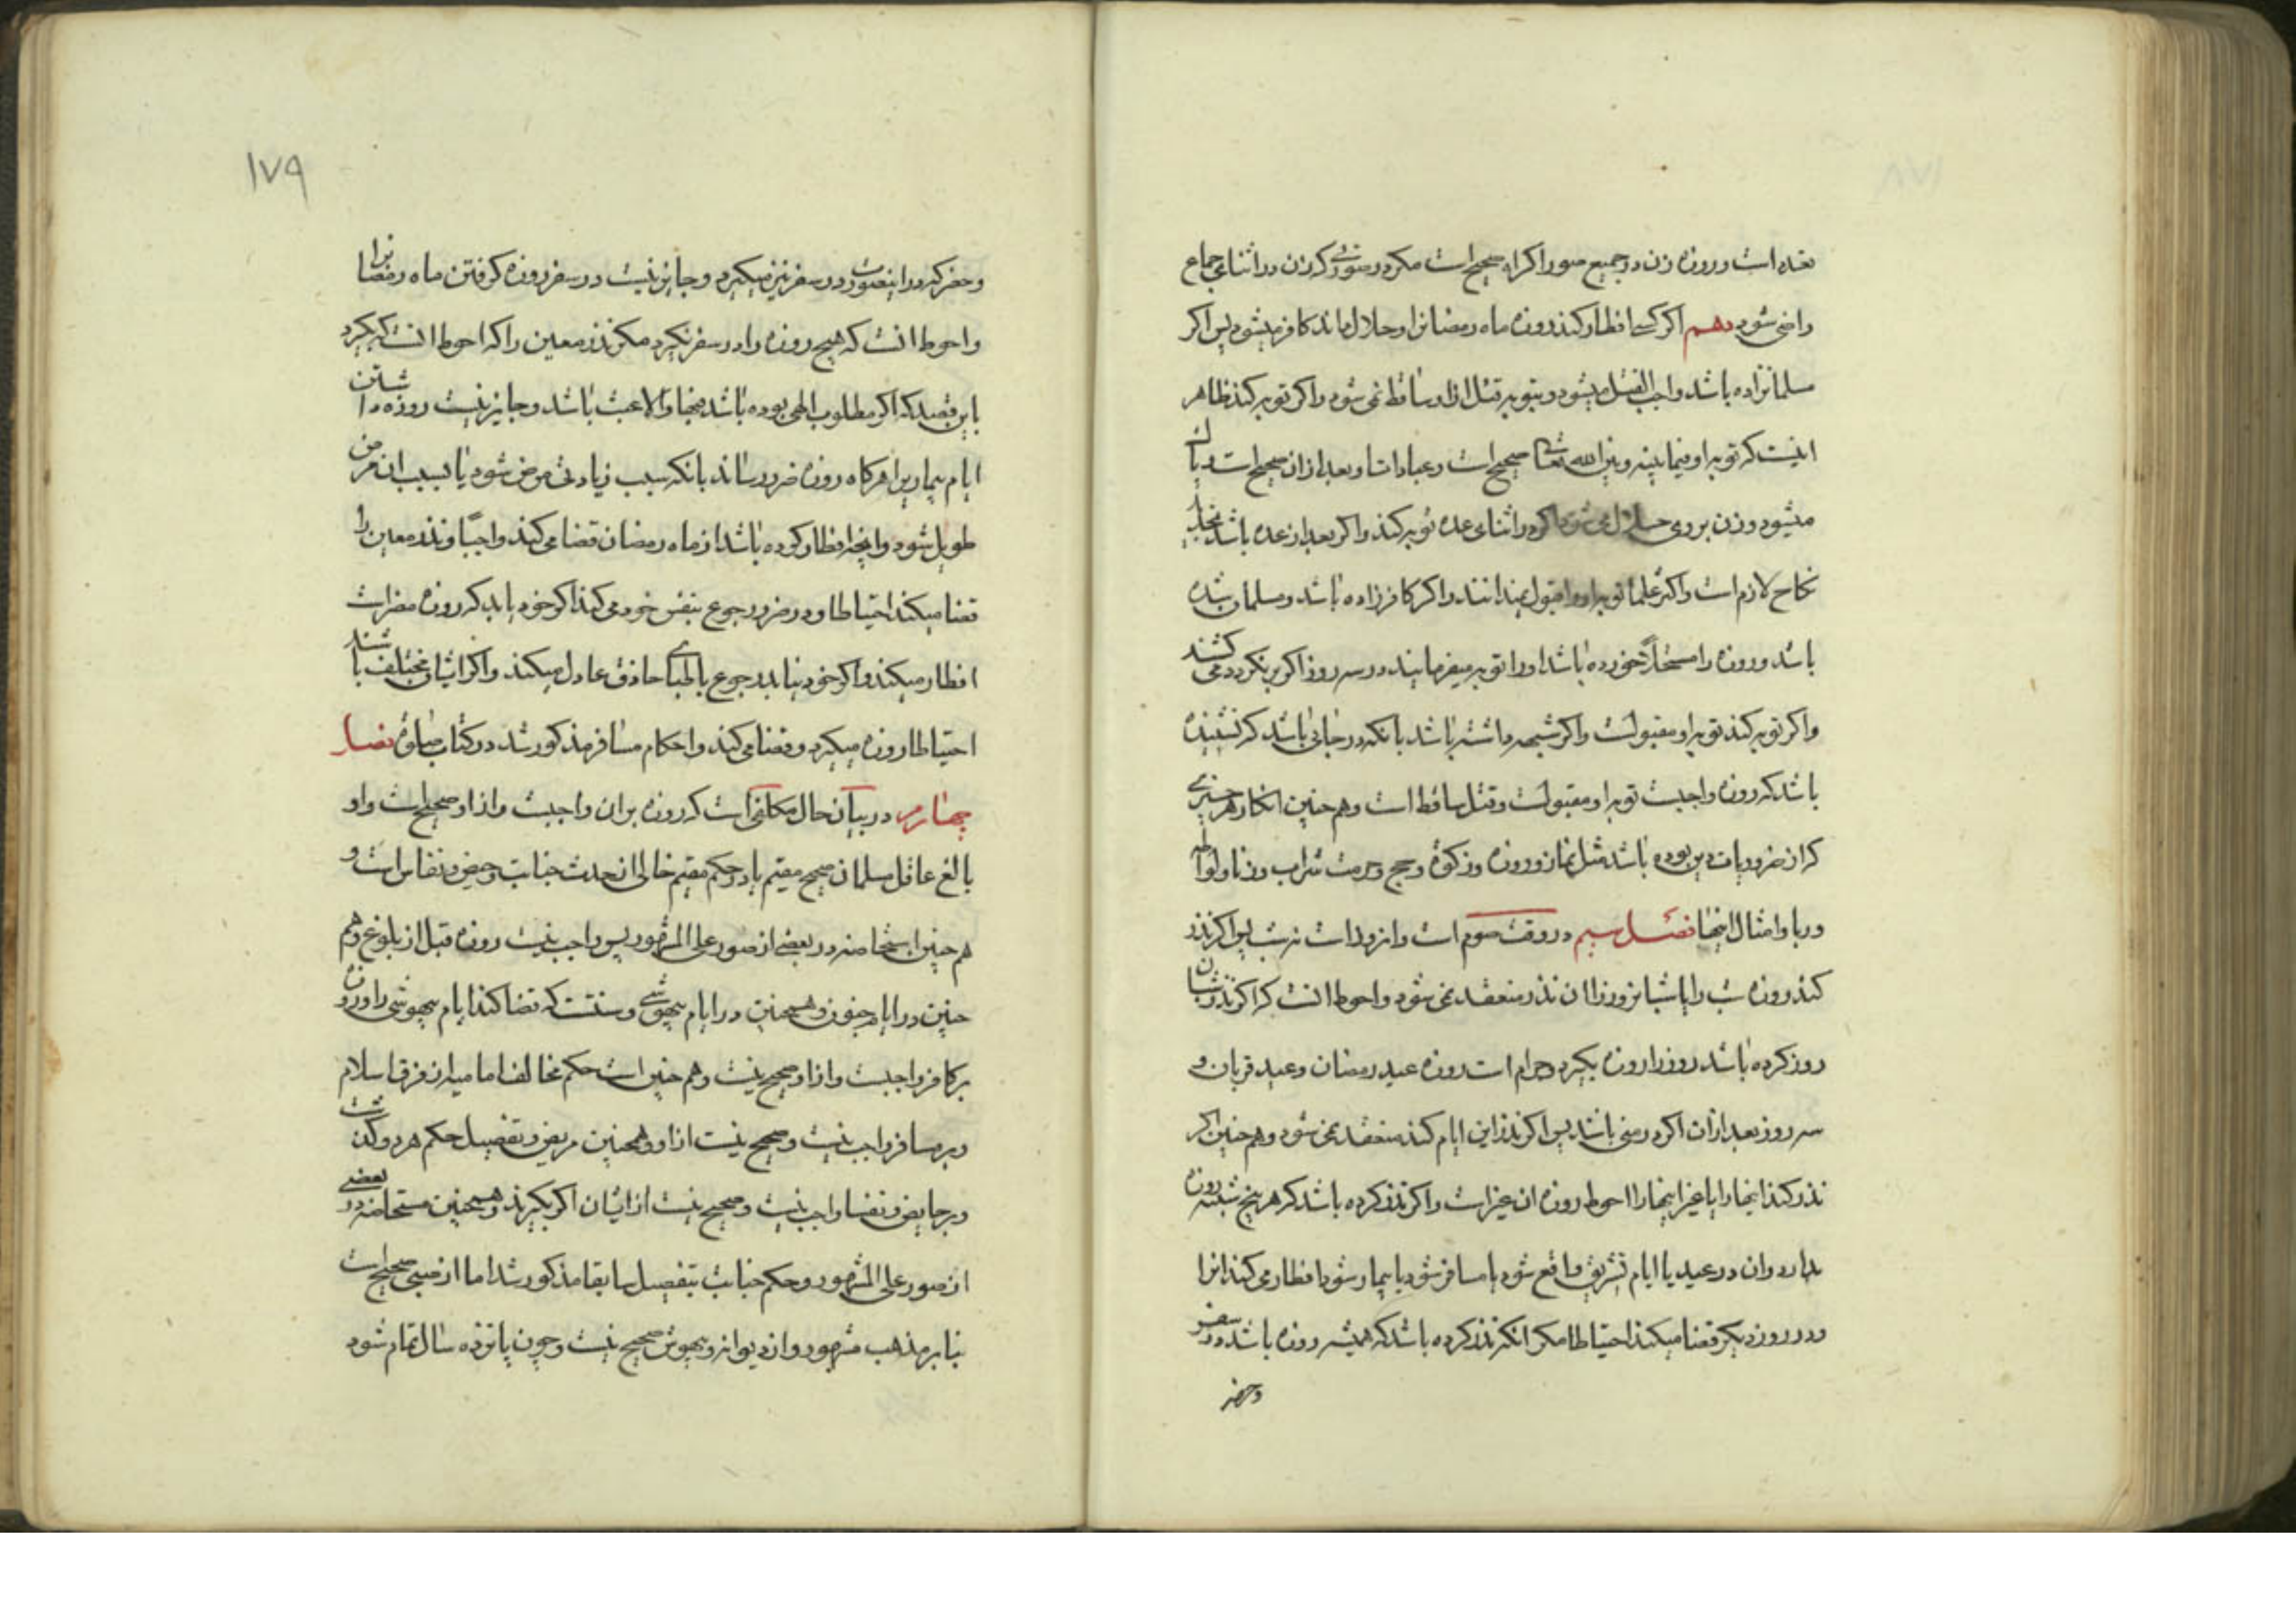 نشده است و روزه زن در جمیع صور اکراه صحیح است مکر در صورتی که زن در اثنای جماع
راضی شود دهم اکر کسی افطار کند روزه ماه رمضانرا و حلال داند کافر میشود پس اکر
مسلمانزاده باشد واجب القتل میشود و بتوبه قتل از او ساقط نمی شود و اکر توبه کند ظاهر
اینست که توبه او فیما بینه و بین الله تعالی صحیح است و عبادات او بعد از ان صحیح است و پاک
میشود و زن بر وی حلال می شود اکر در اثنای عده توبه کند و اکر بعد از عده باشد
نکاح لازم است و اکثر علما توبه او را قبول نمیدانند و اکر کافرزاده باشد و مسلمان شده
باشد و روزه را مستحلاً خورده باشد او را توبه میفرمایند در سه روز اکر بر نکردد می کشند
و اکر توبه کند توبه او مقبولست و اکر شبهه داشته باشد بانکه در جائی باشد که نشنیده
باشد که روزه واجبست توبه او مقبولست و قتل ساقط است و هم چنین انکار هر چیزی
که از ضروریات دین بوده باشد مثل نماز و روزه و زکوة و حج و حرمت شراب و زنا و لواطه
و ربا و امثال اینها فصل سیم در وقت صوم است و ان روز است نه شب پس اکر نذر
کند روزه شب را یا شبانروز را ان نذر منعقد نمی شود و احوط انست که اکر نذر شبان
روز کرده باشد روز را روزه بکیرد و حرام است روزه عید رمضان و عید قربان و
سه روز بعد از ان اکر در منی باشد پس اکر نذر این ایام کند منعقد نمی شود و هم چنین اکر
نذر کند اینها را با غیر اینها را احوط روزه ان غیر است و اکر نذر کرده باشد که هر پنج شنبه روزه
بدارد و ان در عید یا ایام تشریق واقع شود یا مسافر شود یا بیمار شود افطار می کند انرا
و در روز دیکر قضا میکند احتیاطا مکر انکه نذر کرده باشد که همیشه روزه باشد در سفر
و حضر
۱۷۹
و حضر که در اینصورت در سفر نیز میکیرد و جایز نیست در سفر روزه کرفتن ماه رمضانرا
و احوط انست که هیچ روزه را در سفر نکیرد مکر نذر معین را که احوط انست که بکیرد
باین قصد که اکر مطلوب الهی بوده باشد فبها و الا عبث باشد و جایز نیست روزه داشتن
ایام بیماریرا هرکاه روزه ضرر رساند بانکه سبب زیادتی مرض شود یا بسبب ان مرض
طویل شود و انچه افطار کرده باشد از ماه رمضان قضا می کند واجبًا و نذر معین را
قضا میکند احتیاطا و در ضرر رجوع بنفس خود می کند اکر خود یابد که روزه مضر است
افطار میکند و اکر خود نیابد رجوع باطبای حاذق عادل میکند و اکر ایشان مختلف باشند
احتیاطا روزه میکیرد و قضا می کند و احکام مسافر مذکور شد در کتاب صلوة فصل
چهارم در بیان حال مکلفی است که روزه بر ان واجبست و از او صحیح است و او
بالغ عاقل مسلمان صحیح مقیم یا در حکم مقیم خالی از حدث جنابت و حیض و نفاس است و
هم چنین استحاضه در بعضی از صور علی المشهور پس واجب نیست روزه قبل از بلوغ و هم
چنین در ایام جنون و همچنین در ایام بیهوشی و سنتست که قضا کند ایام بیهوشی را و روزه
بر کافر واجبست و از او صحیح نیست و هم چنین است حکم مخالف امامیه از فرق اسلام
و بر مسافر واجب نیست و صحیح نیست از او و همچنین مریض و تفصیل حکم هر دو کذشت
و بر حایض و نفسا واجب نیست و صحیح نیست از ایشان اکر بکیرند و همچنین مستحاضه در بعضی
از صور علی المشهور و حکم جنابت بتفصیل سابقا مذکور شد اما از صبی صحیح است
بنابر مذهب مشهور و از دیوانه و بیهوش صحیح نیست و چون پانزده سال تمام شود